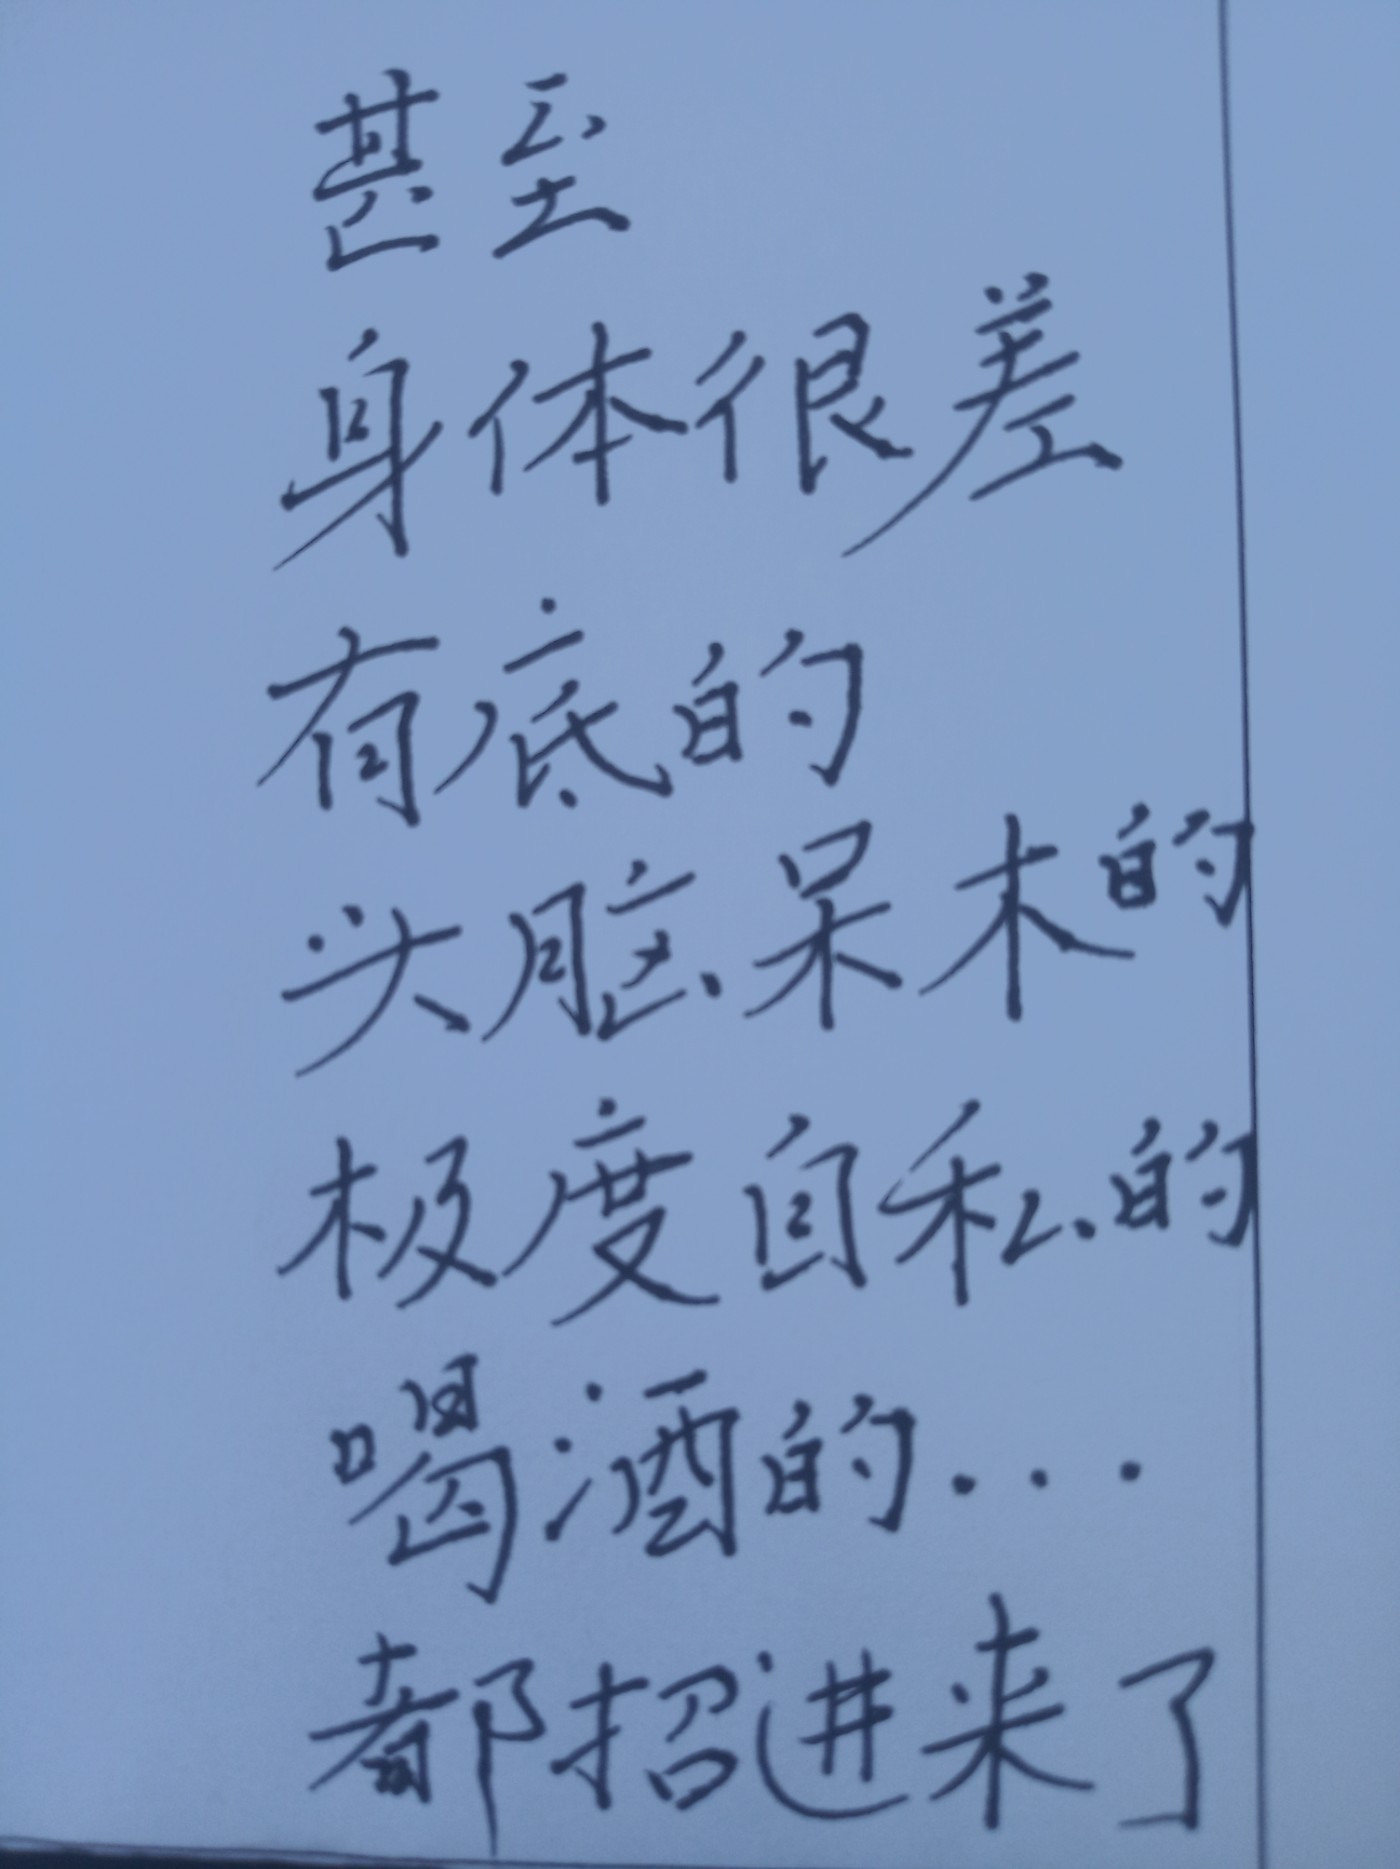 甚至
身体很差
有底的
头脑呆木的
极度自私的
喝酒的...
都招进来了